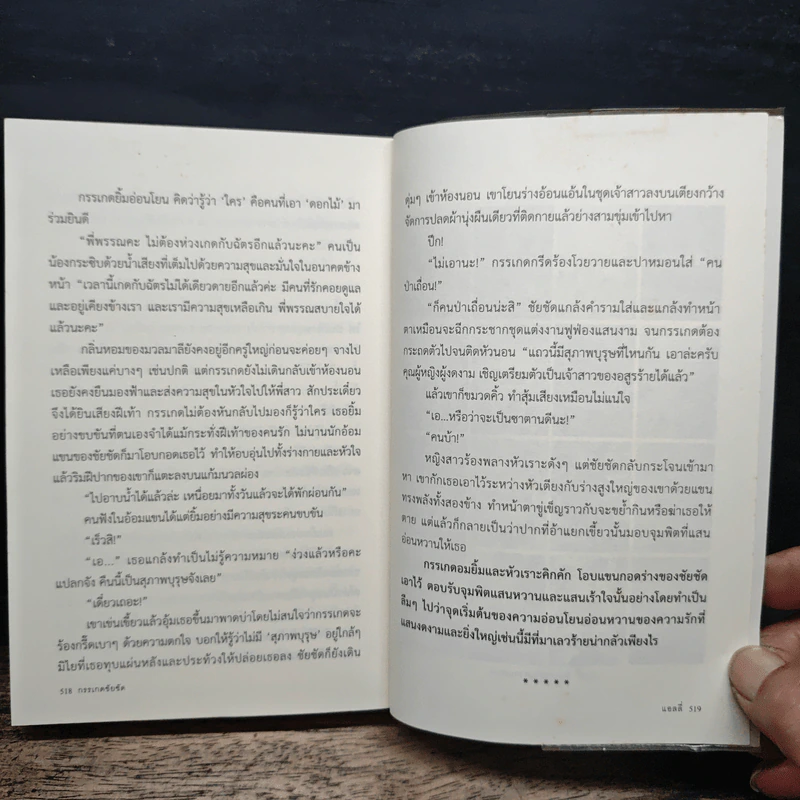 กรรเกดยิ้มอ่อนโยน คิดว่ารู้ว่า ‘ใคร’ คือคนที่เอา ‘ดอกไม้’ มา
ร่วมยินดี
“พี่พรรณคะ ไม่ต้องห่วงเกดกับฉัตรอีกแล้วนะคะ” คนเป็น
น้องกระซิบด้วยน้ำเสียงที่เต็มไปด้วยความสุขและมั่นใจในอนาคตข้าง
หน้า “เวลานี้เกดกับฉัตรไม่ได้เดียวดายอีกแล้วค่ะ มีคนที่รักคอยดูแล
และอยู่เคียงข้างเรา และเรามีความสุขเหลือเกิน พี่พรรณสบายใจได้
แล้วนะคะ”
กลิ่นหอมของมวลมาลียังคงอยู่อีกครู่ใหญ่ก่อนจะค่อยๆ จางไป
เหลือเพียงแค่บางๆ เช่นปกติ แต่กรรเกดยังไม่เดินกลับเข้าห้องนอน
เธอยังคงยืนมองฟ้าและส่งความสุขในหัวใจไปให้พี่สาว สักประเดี๋ยว
จึงได้ยินเสียงฝีเท้า กรรเกดไม่ต้องหันกลับไปมองก็รู้ว่าใคร เธอยิ้ม
อย่างขบขันที่ตนเองจำได้แม้กระทั่งฝีเท้าของคนรัก ไม่นานนักอ้อม
แขนของชัยชัดก็มาโอบกอดเธอไว้ ทำให้อบอุ่นไปทั้งร่างกายและหัวใจ
แล้วริมฝีปากของเขาก็แตะลงบนแก้มนวลผ่อง
“ไปอาบน้ำได้แล้วล่ะ เหนื่อยมาทั้งวันแล้วจะได้พักผ่อนกัน”
คนฟังในอ้อมแขนได้แต่ยิ้มอย่างมีความสุขระคนขบขัน
“เร็วสิ!”
“เอ...” เธอแกล้งทำเป็นไม่รู้ความหมาย “ง่วงแล้วหรือคะ
แปลกจัง คืนนี้เป็นสุภาพบุรุษจังเลย”
“เดี๋ยวเถอะ!”
เขาเข่นเขี้ยวแล้วอุ้มเธอขึ้นมาพาดบ่าโดยไม่สนใจว่ากรรเกดจะ
ร้องกรี๊ดเบาๆ ด้วยความตกใจ บอกให้รู้ว่าไม่มี ‘สุภาพบุรุษ’ อยู่ใกล้ๆ
มิไยที่เธอทุบแผ่นหลังและประท้วงให้ปล่อยเธอลง ชัยชัดก็ยังเดิน
518 กรรเกดชัยชัด
ดุ่มๆ เข้าห้องนอน เขาโยนร่างอ้อนแอ้นในชุดเจ้าสาวลงบนเตียงกว้าง
จัดการปลดผ้านุ่งผืนเดียวที่ติดกายแล้วย่างสามขุมเข้าไปหา
ปึก!
“ไม่เอานะ!” กรรเกดกรีดร้องโวยวายและปาหมอนใส่ “คน
ป่าเถื่อน!”
“ก็คนป่าเถื่อนน่ะสิ” ชัยชัดแกล้งคำรามใส่และแกล้งทำหน้า
ตาเหมือนจะฉีกกระชากชุดแต่งงานฟูฟ่องแสนงาม จนกรรเกดต้อง
กระถดตัวไปจนติดหัวนอน “แถวนี้มีสุภาพบุรุษที่ไหนกัน เอาล่ะครับ
คุณผู้หญิงผู้งดงาม เชิญเตรียมตัวเป็นเจ้าสาวของอสูรร้ายได้แล้ว”
แล้วเขาก็ขมวดคิ้ว ทำสุ้มเสียงเหมือนไม่แน่ใจ
“เอ...หรือว่าจะเป็นซาตานดีนะ!”
“คนบ้า!”
หญิงสาวร้องพลางหัวเราะดังๆ แต่ชัยชัดกลับกระโจนเข้ามา
หา เขากักเธอเอาไว้ระหว่างหัวเตียงกับร่างสูงใหญ่ของเขาด้วยแขน
ทรงพลังทั้งสองข้าง ทำหน้าตาขู่เข็ญราวกับจะขย้ำกินหรือฆ่าเธอให้
ตาย แต่แล้วก็กลายเป็นว่าปากที่อ้าแยกเขี้ยวนั้นมอบจุมพิตที่แสน
อ่อนหวานให้เธอ
กรรเกดอมยิ้มและหัวเราะคิกคัก โอบแขนกอดร่างของชัยชัด
เอาไว้ ตอบรับจุมพิตแสนหวานและแสนเร้าใจนั้นอย่างโดยทำเป็น
ลืมๆ ไปว่าจุดเริ่มต้นของความอ่อนโยนอ่อนหวานของความรักที่
แสนงดงามและยิ่งใหญ่เช่นนี้มีที่มาเลวร้ายน่ากลัวเพียงไร
*****
แอลลี่ 519